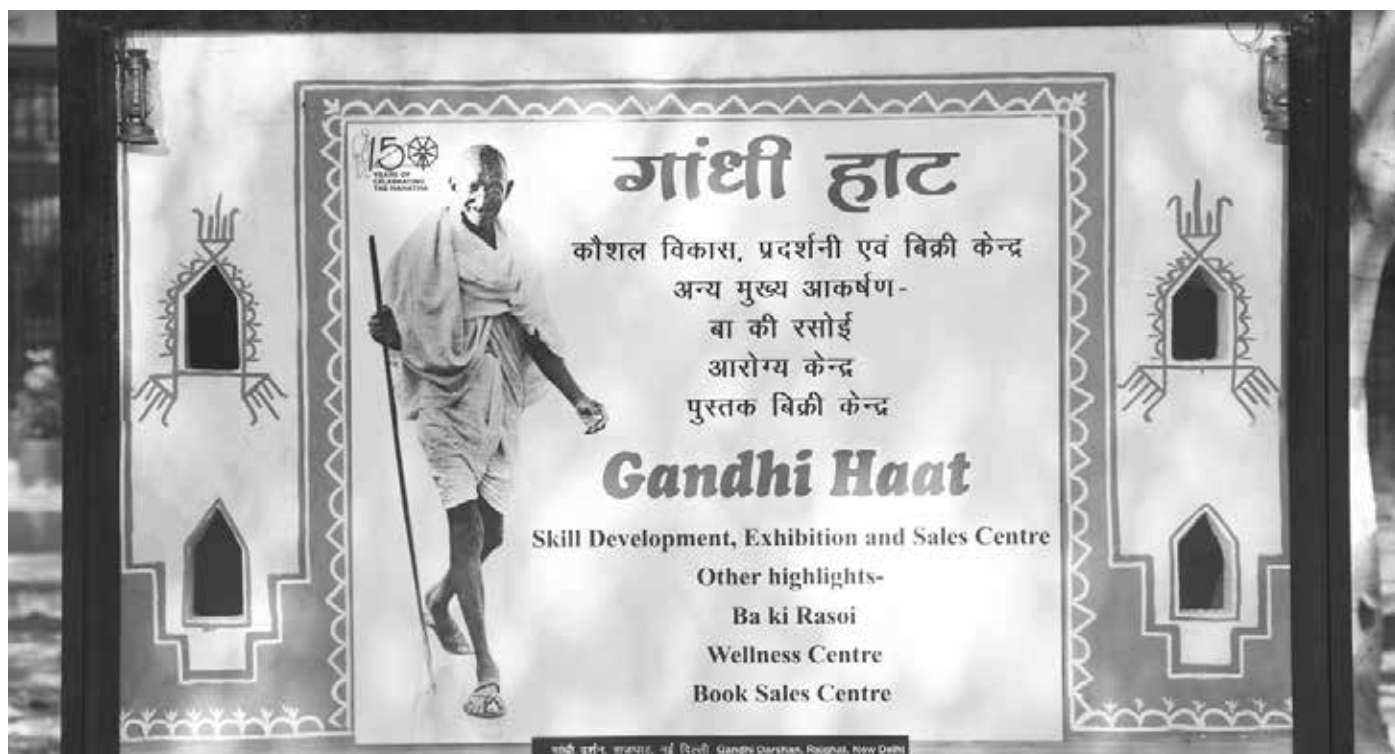 150
YEARS OF
CELEBRATING
THE MAHATMA
गांधी हाट
कौशल विकास, प्रदर्शनी एवं बिक्री केन्द्र
अन्य मुख्य आकर्षण-
बा की रसोई
आरोग्य केन्द्र
पुस्तक बिक्री केन्द्र
Gandhi Haat
Skill Development, Exhibition and Sales Centre
Other highlights-
Ba ki Rasoi
Wellness Centre
Book Sales Centre
गांधी दर्शन, राजघाट, नई दिल्ली Gandhi Darshan, Rajghat, New Delhi